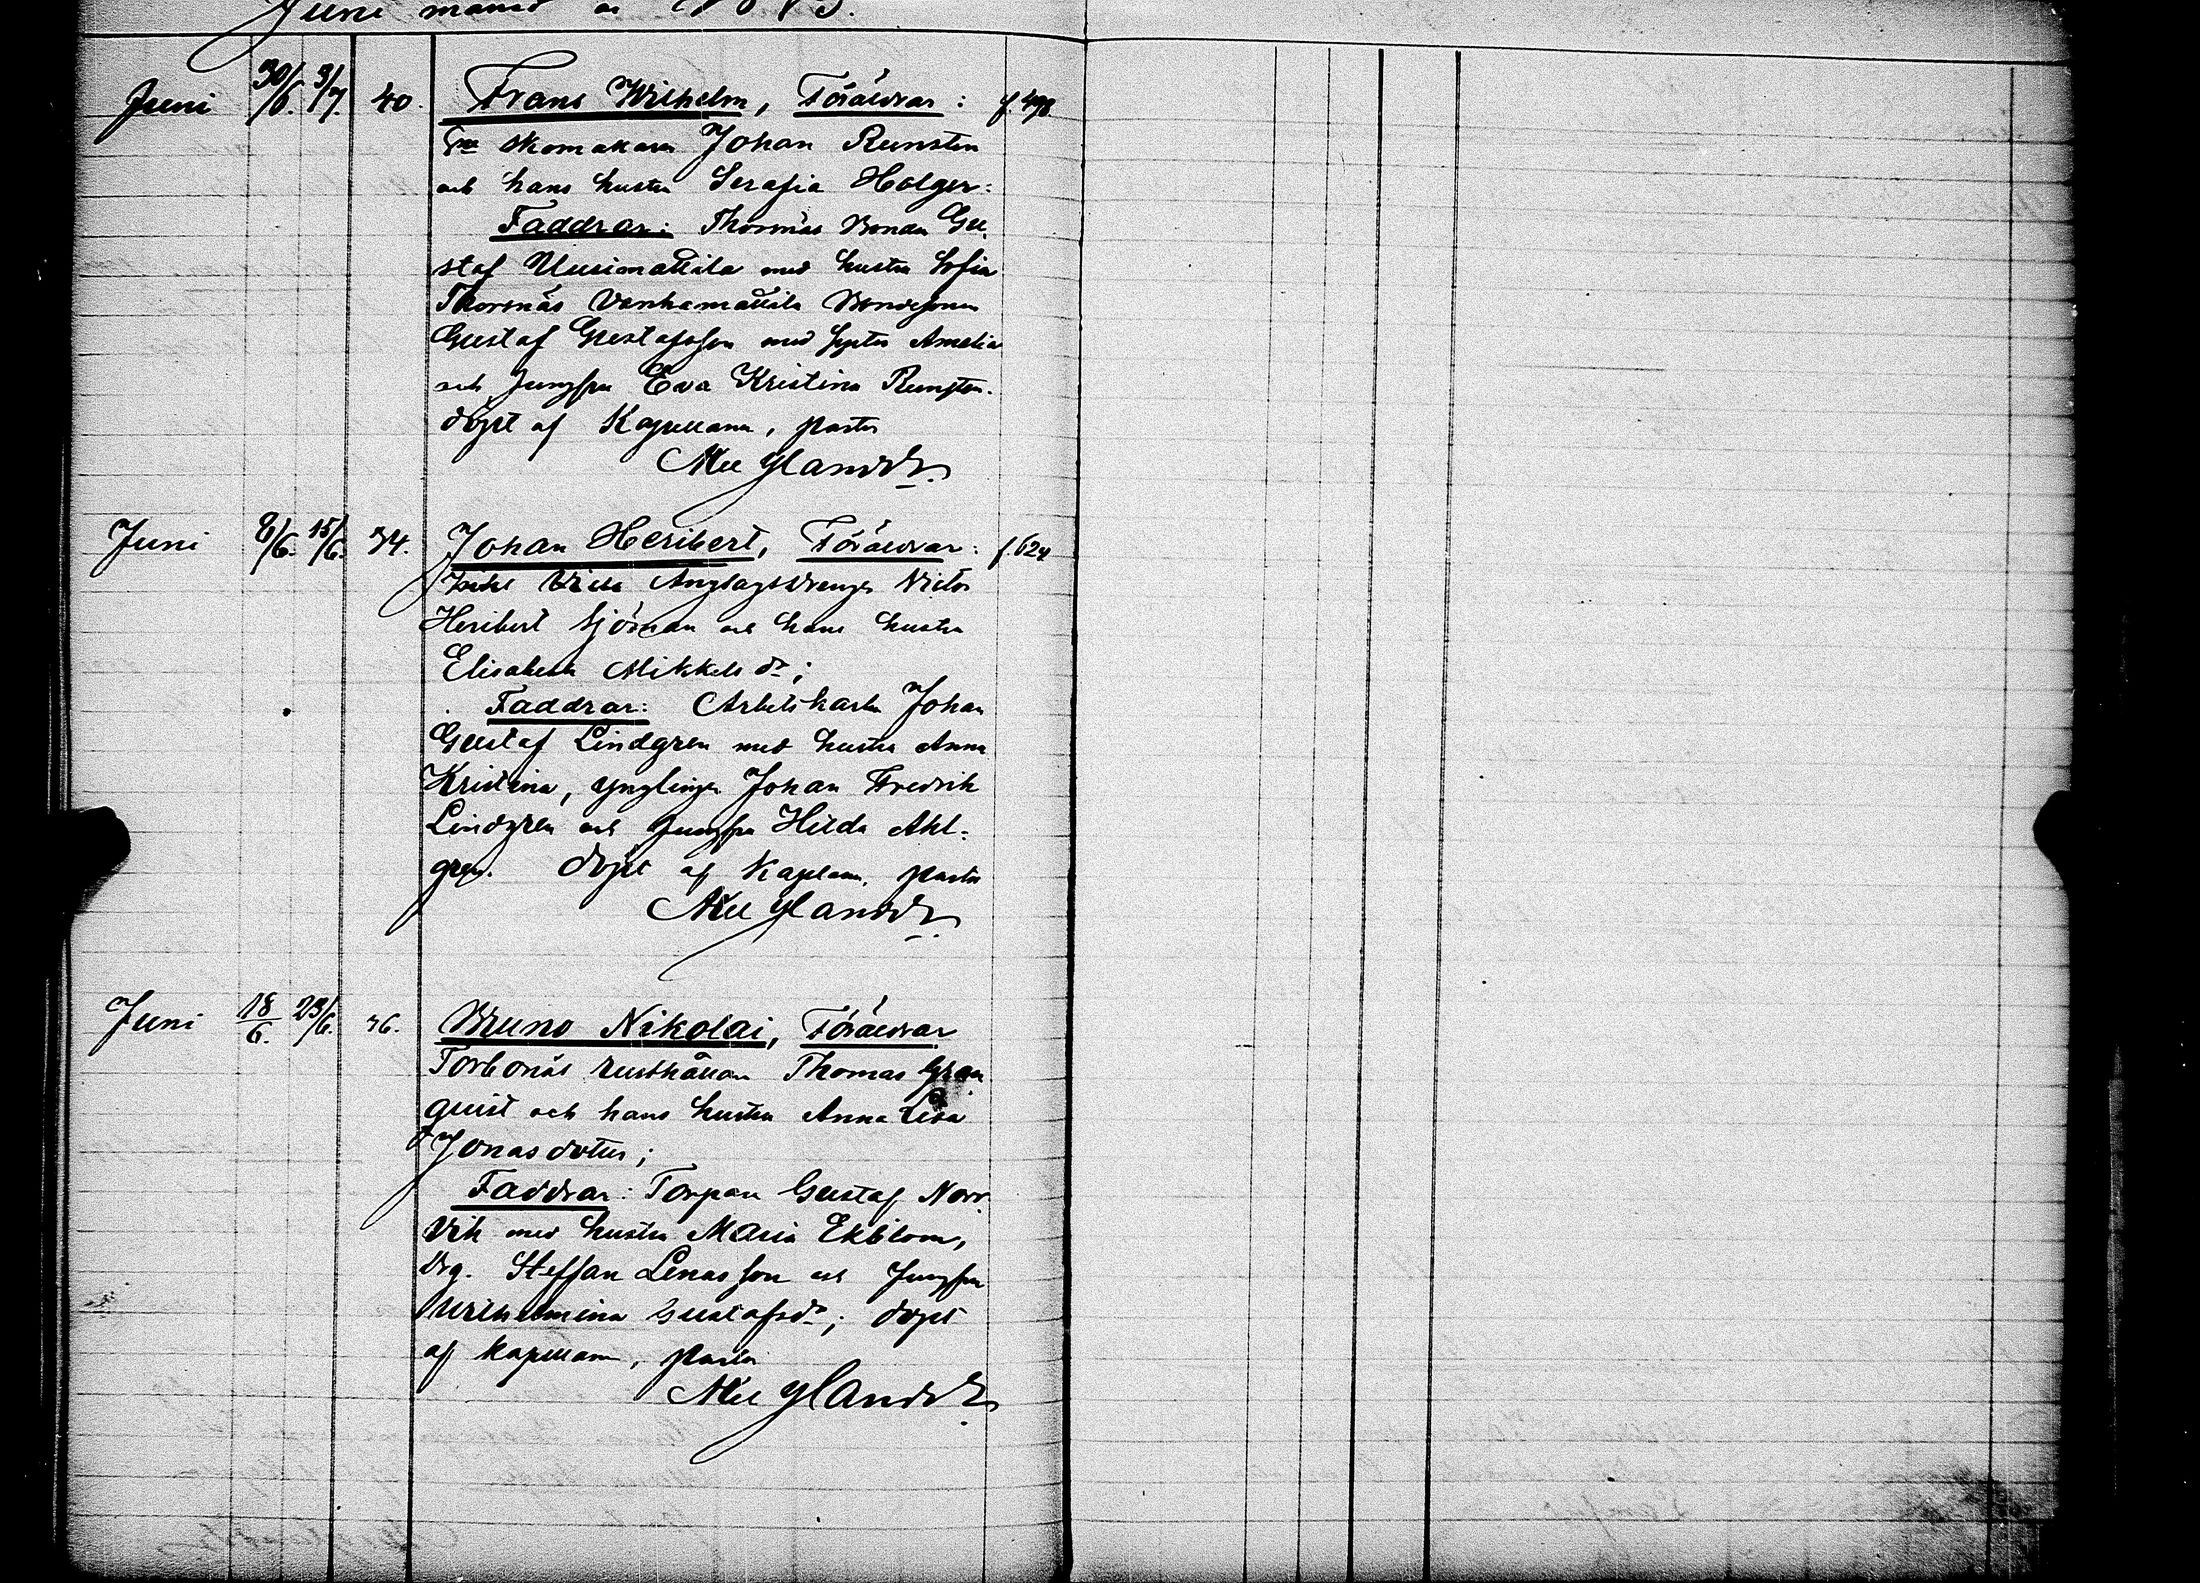 Juni månad
Juni 30/6. 3/7. 40. Frans Wilhelm, Föräldrar: f. 498.
skomakaren Johan Runsten
och hans hustru Serafia Holger:
Faddrar: Thorsnäs Bonden Gu-
staf Uusimattila med hustru Sofia
Thorsnäs Vanhamattila Bondesonen
Gustaf Gustafsson med syster Amalia
och Jungfru Eva Kristina Runsten.
döpt af Kapellanen, pastor
Ylander
Juni 8/6. 15/6. 34. Johan Heribert, Föräldrar: f. 624
Villa Ångsågsdrengen Victor
Heribert Sjöman och hans hustru
Elisabeth Mikkelsdr;
Faddrar: Arbetskarlen Johan
Gustaf Lindgren med hustru Anna
Kristina, ynglingen Johan Fredrik
Lindgren och Jungfru Hilda Ahl-
gren. döpt af Kaplanen, pastor
Ylander
Juni 18/6. 23/6. 36. Bruno Nikolai, Föräldrar
Torbonäs rusthållaren Thomas Gran
quist och hans hustru Anna Lisa
Jonasdotter;
Faddrar: Torparen Gustaf Norr-
vik med hustru Maria Ekblom,
Drg. Steffan Lenasson och Jungfru
Wilhelmina Gustafsdr; döpt
af kapellanen, pastor
Ylander